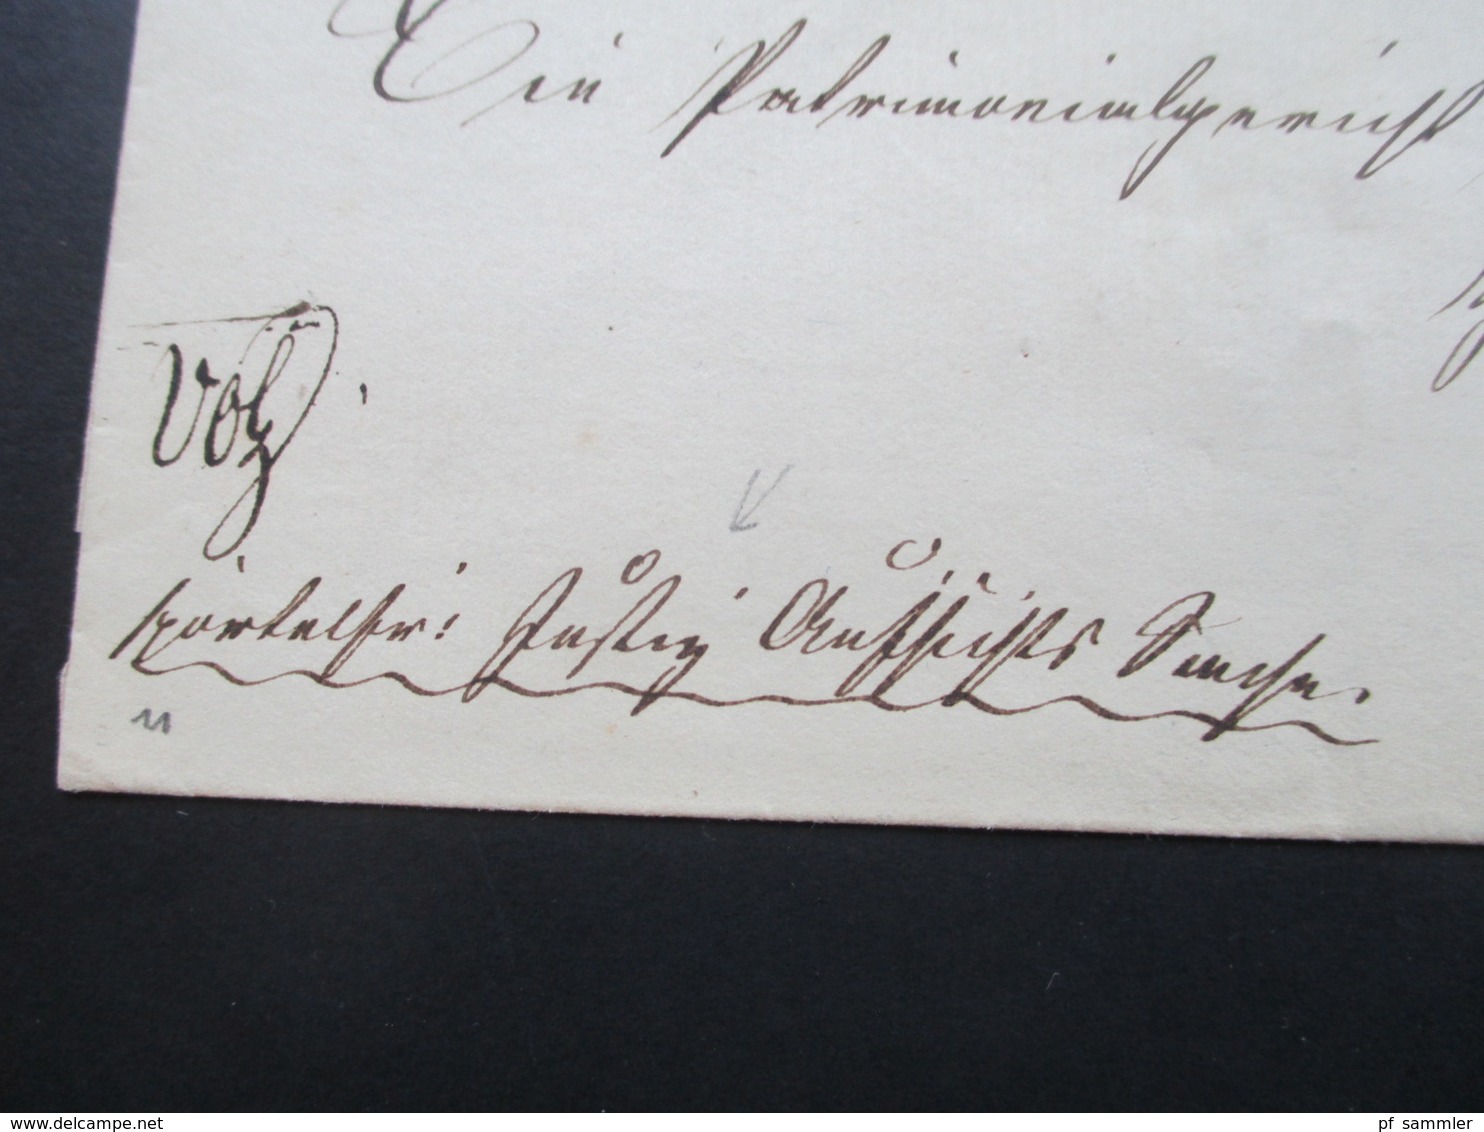 Die Patrimonialgericht
Volz
sportelfr: Justiz Aufsichts Sache.
11
www.delcampe.net
pf_sammler